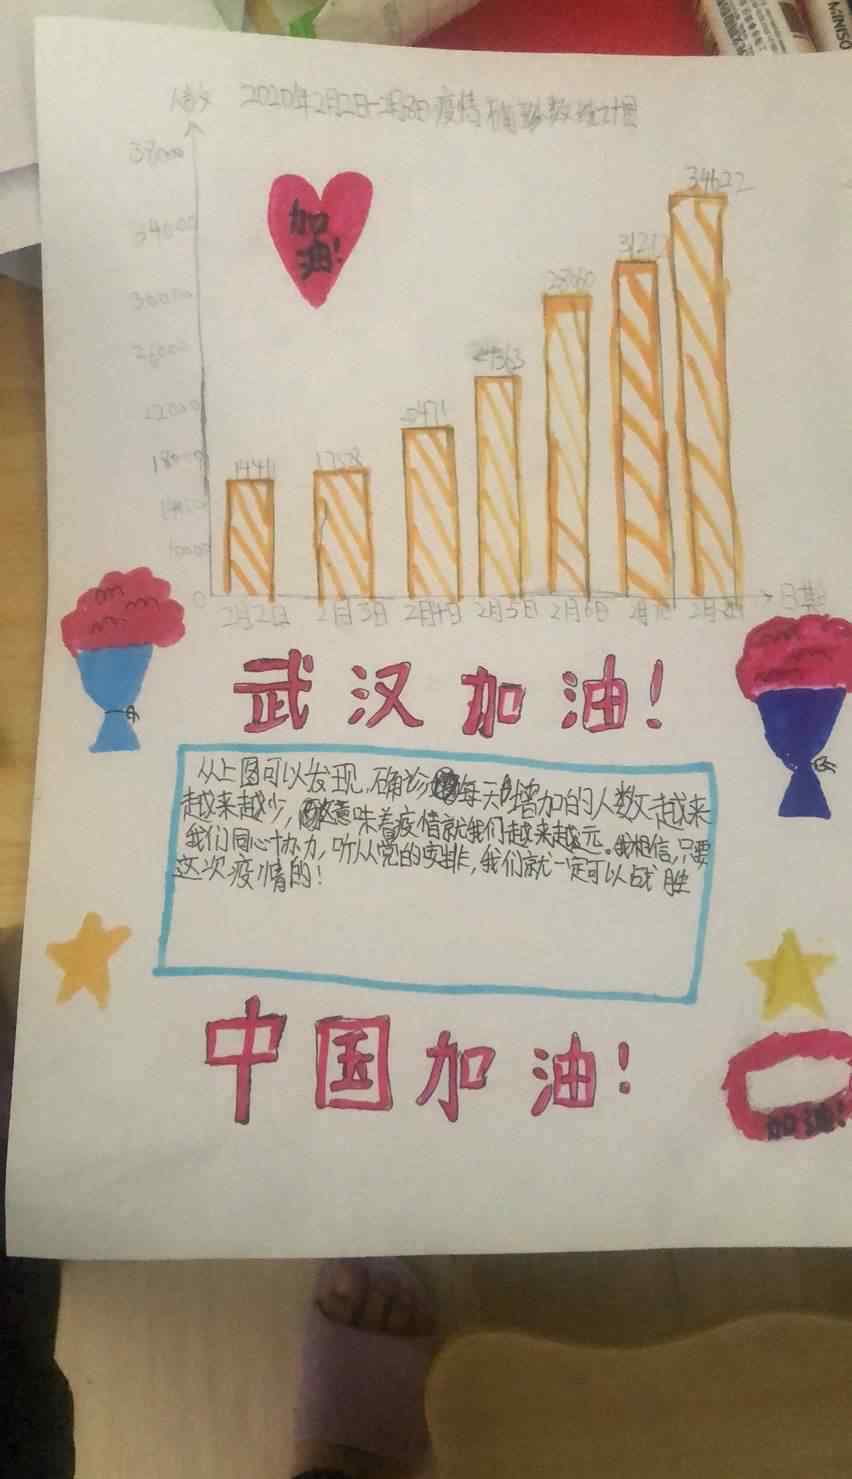 人数 2020年2月2日-2月8日疫情确诊数统计图
38000
34000
30000
26000
22000
18000
14000
10000
0
加
油!
14411
20471
24363
28060
34622
2月2日 2月3日 2月4日 2月5日 2月6日 2月7日 2月8日 日期
武汉加油!
从上图可以发现,确诊每天增加的人数越来
越来越少,这意味着疫情就我们越来越远。我相信,只要
我们同心协力,听从党的安排,我们就一定可以战胜
这次疫情的!
中国加油!
加油!
MINISO